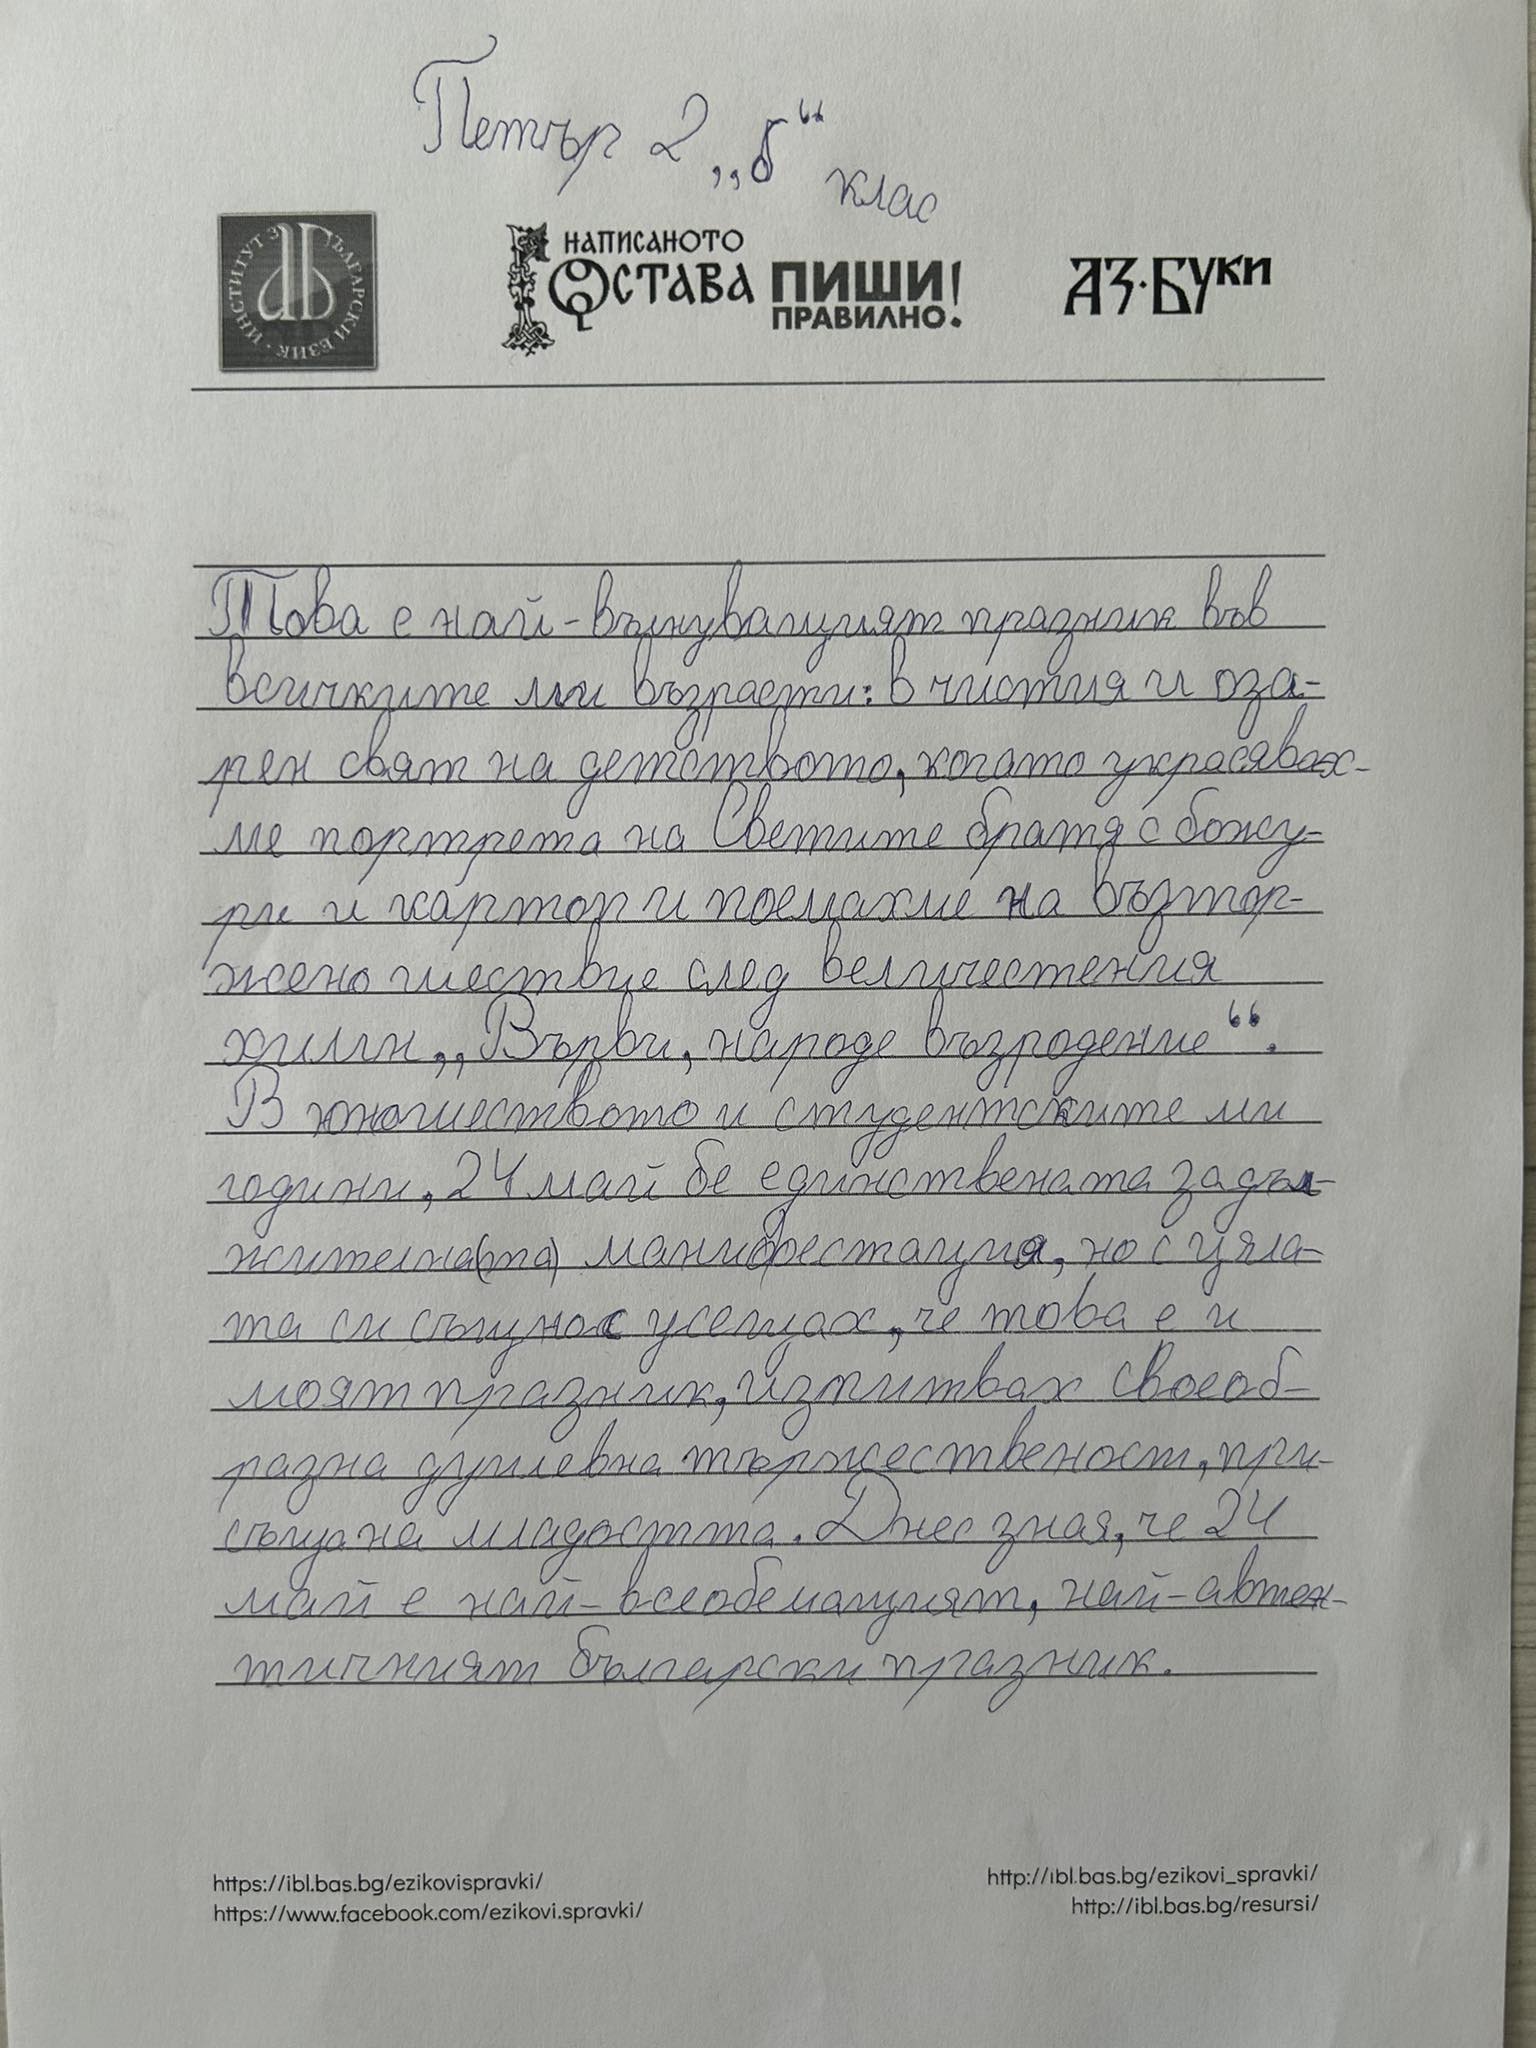 Петър 2 „б“ клас
ИНСТИТУТ ЗА БЪЛГАРСКИ ЕЗИК
НАПИСАНОТО
ОСТАВА ПИШИ!
ПРАВИЛНО.
АЗ·БУКИ
Това е най-вълнуващият празник във
всичките ми възрасти: в чистия и оза-
рен свят на детството, когато украсявах-
ме портрета на Светите братя с божу-
ри и картон и поемахме на възтор-
жено шествие след величестения
химн „Върви, народе възродение“.
В юношеството и студентските ми
години, 24 май бе единствената задъл-
жителна(та) манифестация, но с цяла-
та си същнос усещах, че това е и
моят празник, изпитвах своеоб-
разна душевна тържественост, при-
съща на младостта. Днес зная, че 24
май е най-всеобемащият, най-автен-
тичният български празник.
https://ibl.bas.bg/ezikovispravki/
https://www.facebook.com/ezikovi.spravki/
http://ibl.bas.bg/ezikovi_spravki/
http://ibl.bas.bg/resursi/